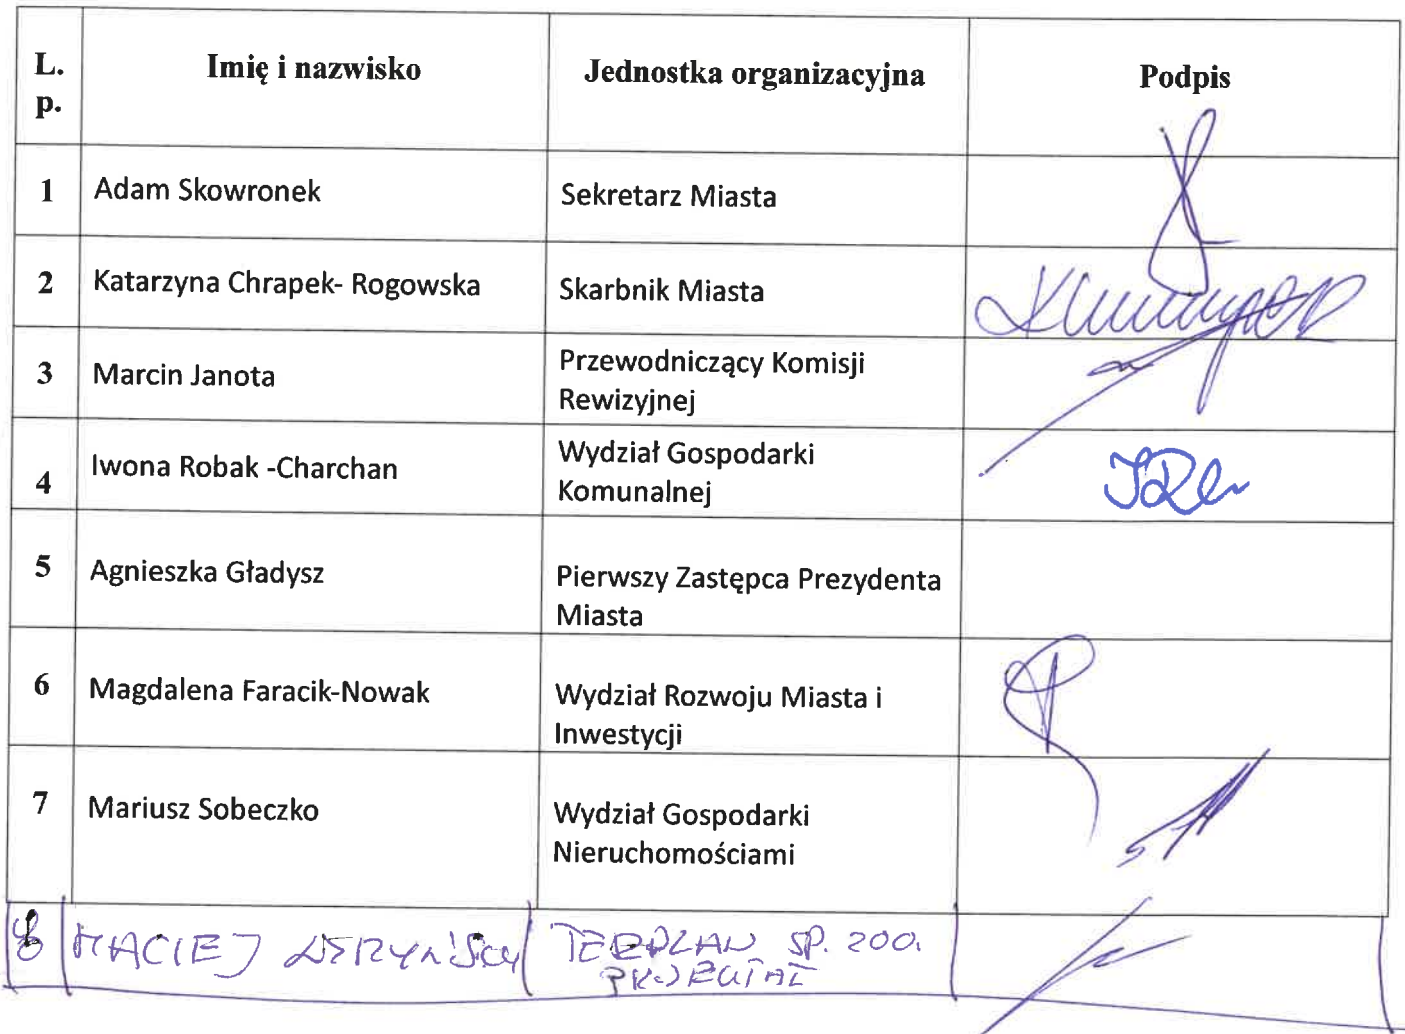 L.
p.
Imię i nazwisko
Jednostka organizacyjna
Podpis
1
Adam Skowronek
Sekretarz Miasta
2
Katarzyna Chrapek- Rogowska
Skarbnik Miasta
3
Marcin Janota
Przewodniczący Komisji
Rewizyjnej
4
Iwona Robak -Charchan
Wydział Gospodarki
Komunalnej
5
Agnieszka Gładysz
Pierwszy Zastępca Prezydenta
Miasta
6
Magdalena Faracik-Nowak
Wydział Rozwoju Miasta i
Inwestycji
7
Mariusz Sobeczko
Wydział Gospodarki
Nieruchomościami
8
MACIEJ
SP. ZOO.